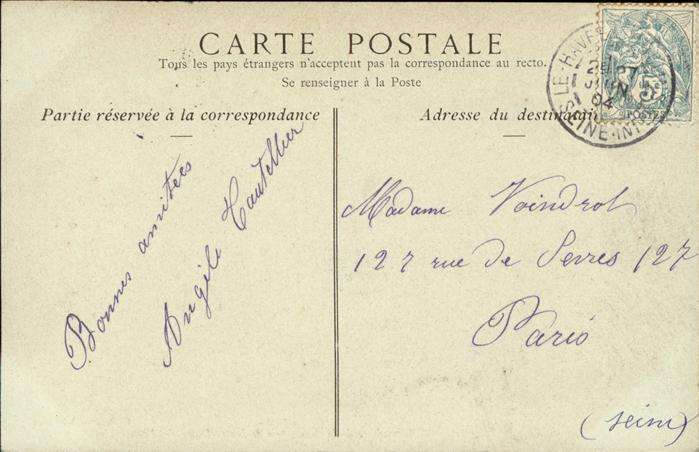 CARTE POSTALE
Tous les pays étrangers n'acceptent pas la correspondance au recto.
Se renseigner à la Poste
Partie réservée à la correspondance
Bonnes amitiés
Angèle
Adresse du destinataire
Madame Voindrot
127 rue de Sevres 127
Paris
(Seine)
LE HAVRE
27
JUIN
04
SEINE-INFRE
5c
POSTES